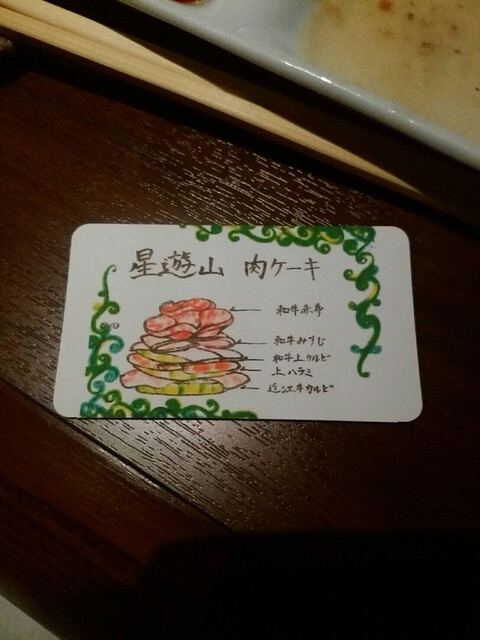 星遊山 肉ケーキ
和牛赤身
和牛みすじ
和牛上カルビ
上ハラミ
近江牛カルビ